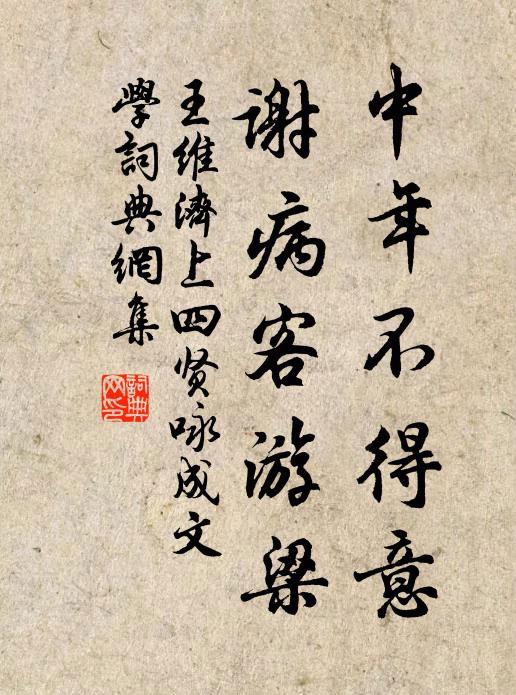 中年不得意
謝病客游梁
王维濟上四贤咏成文
學詞典網集
詞典网印